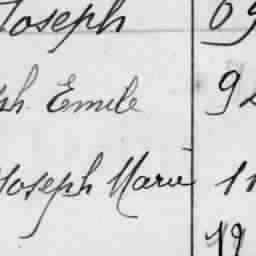 Joseph
ph Emile 9
Joseph Marie 11
19